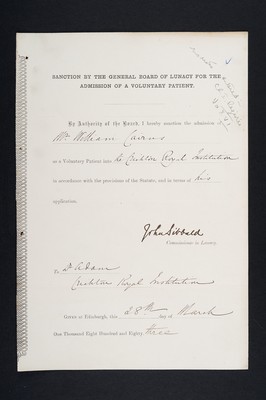 SANCTION BY THE GENERAL BOARD OF LUNACY FOR THE
ADMISSION OF A VOLUNTARY PATIENT.
By Authority of the Board, I hereby sanction the admission of
Mr William
as a Voluntary Patient into the Crichton Royal Institution
in accordance with the provisions of the Statute, and in terms of his
application.
John Sibbald
Commissioner in Lunacy
To Dr Adam
Crichton Royal Institution
Given at Edinburgh, this 28th day of March
One Thousand Eight Hundred and Eighty three